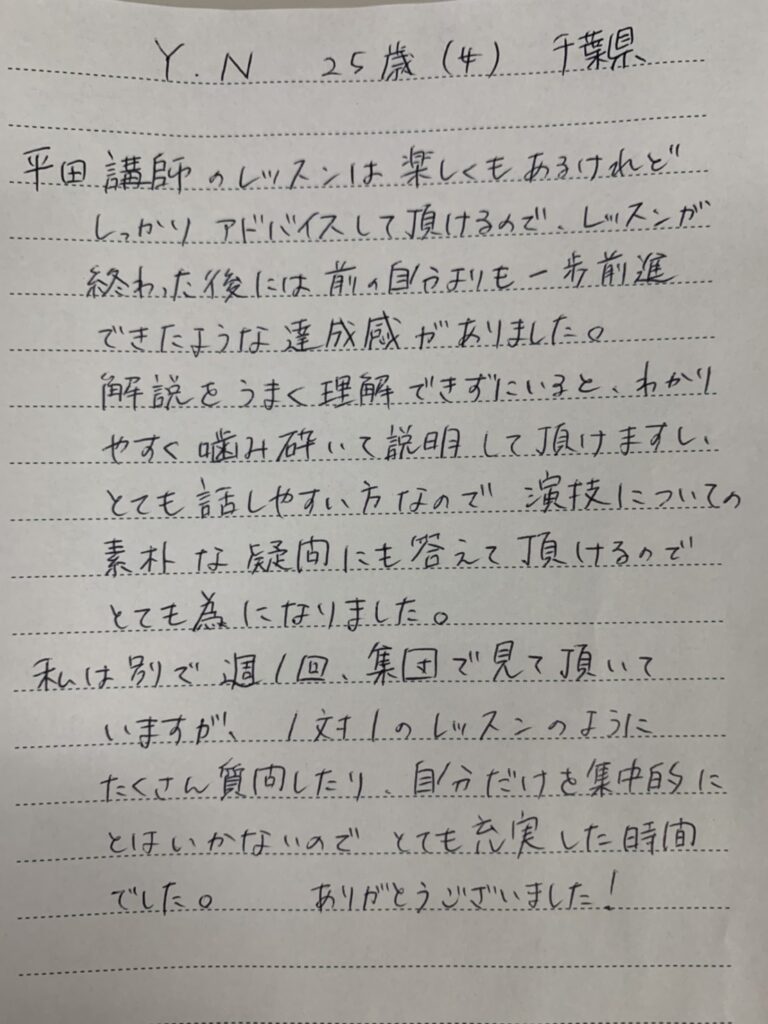 Y.N 25歳(女) 千葉県
平田講師のレッスンは楽しくもあるけれど
しっかりアドバイスして頂けるので、レッスンが
終わった後には前の自分よりも一歩前進
できたような達成感がありました。
解説をうまく理解できずにいると、わかり
やすく噛み砕いて説明して頂けますし、
とても話しやすい方なので演技についての
素朴な疑問にも答えて頂けるので
とても為になりました。
私は別で週1回、集団で見て頂いて
いますが、1対1のレッスンのように
たくさん質問したり、自分だけを集中的に
とはいかないのでとても充実した時間
でした。 ありがとうございました!